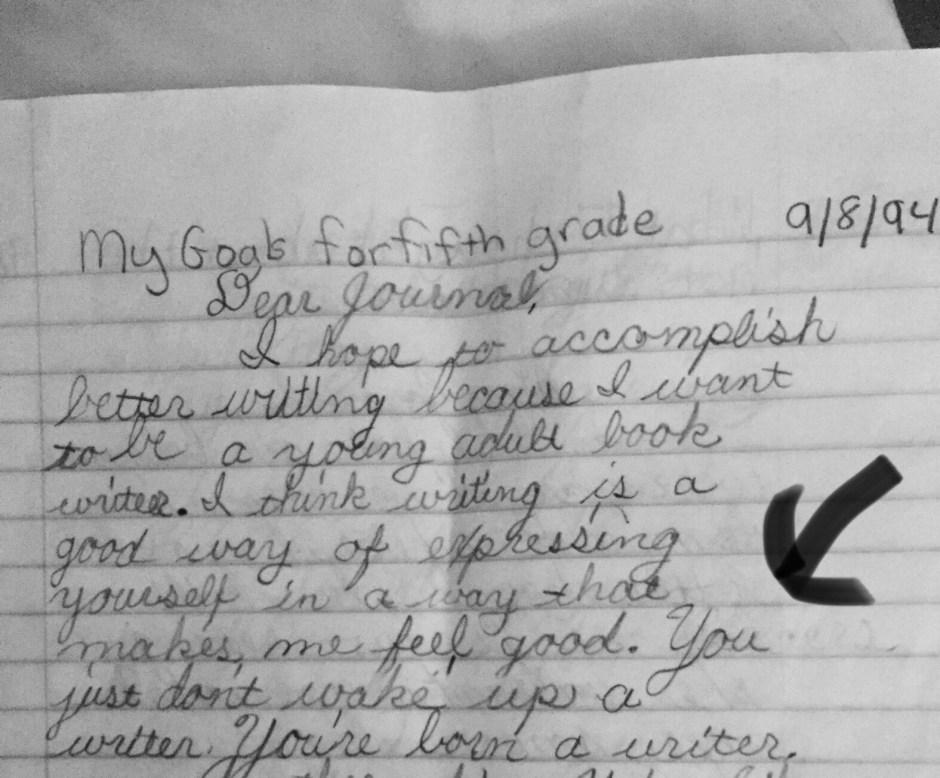 My Goals for fifth grade 9/8/94
Dear Journal,
I hope to accomplish
better writing because I want
to be a young adult book
writer. I think writing is a
good way of expressing
yourself in a way that
makes me feel good. You
just don't wake up a
writer. You're born a writer.